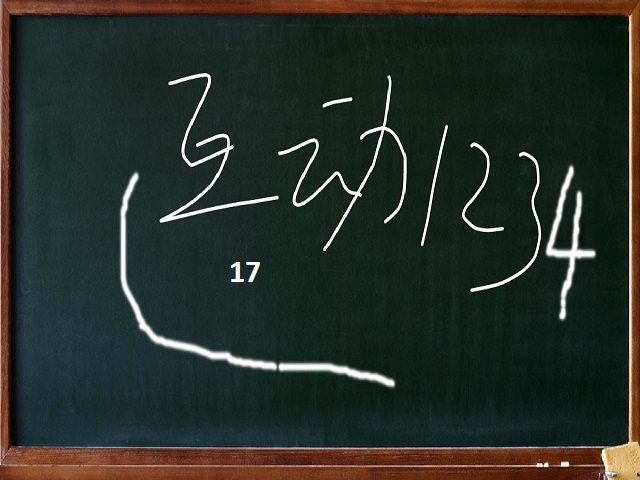 互动1234
17